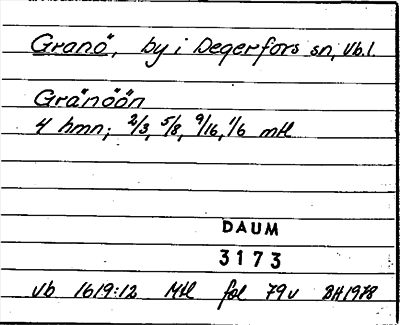 Granö, by i Degerfors sn, Vb.l.
Gränöön
4 hmn; 2/3, 5/8, 9/16, 1/6 mtl
DAUM
3173
Vb 1619:12 Mtl fol 79v BH 1978